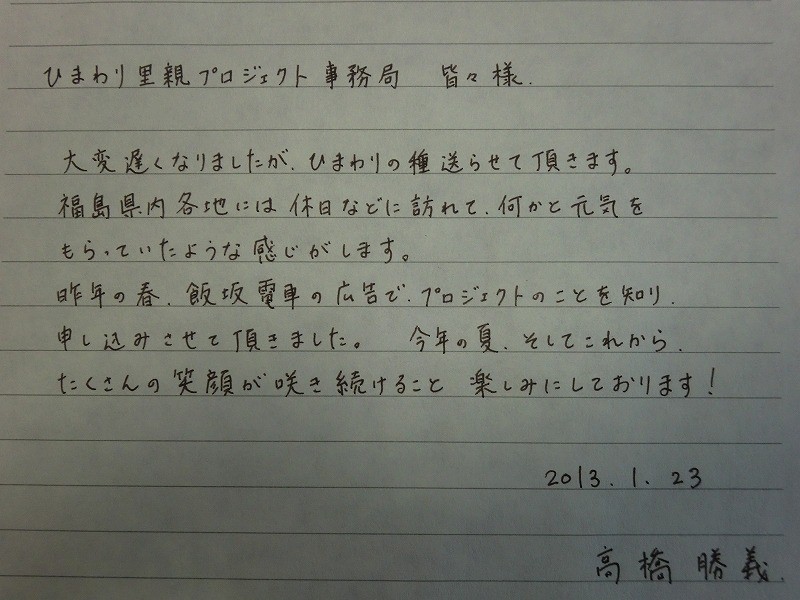 ひまわり里親プロジェクト事務局　皆々様.
大変遅くなりましたが、ひまわりの種送らせて頂きます。
福島県内各地には休日などに訪れて、何かと元気を
もらっていたような感じがします。
昨年の春、飯坂電車の広告で、プロジェクトのことを知り、
申し込みさせて頂きました。　今年の夏、そしてこれから、
たくさんの笑顔が咲き続けること　楽しみにしております!
2013.1.23
高橋勝義.